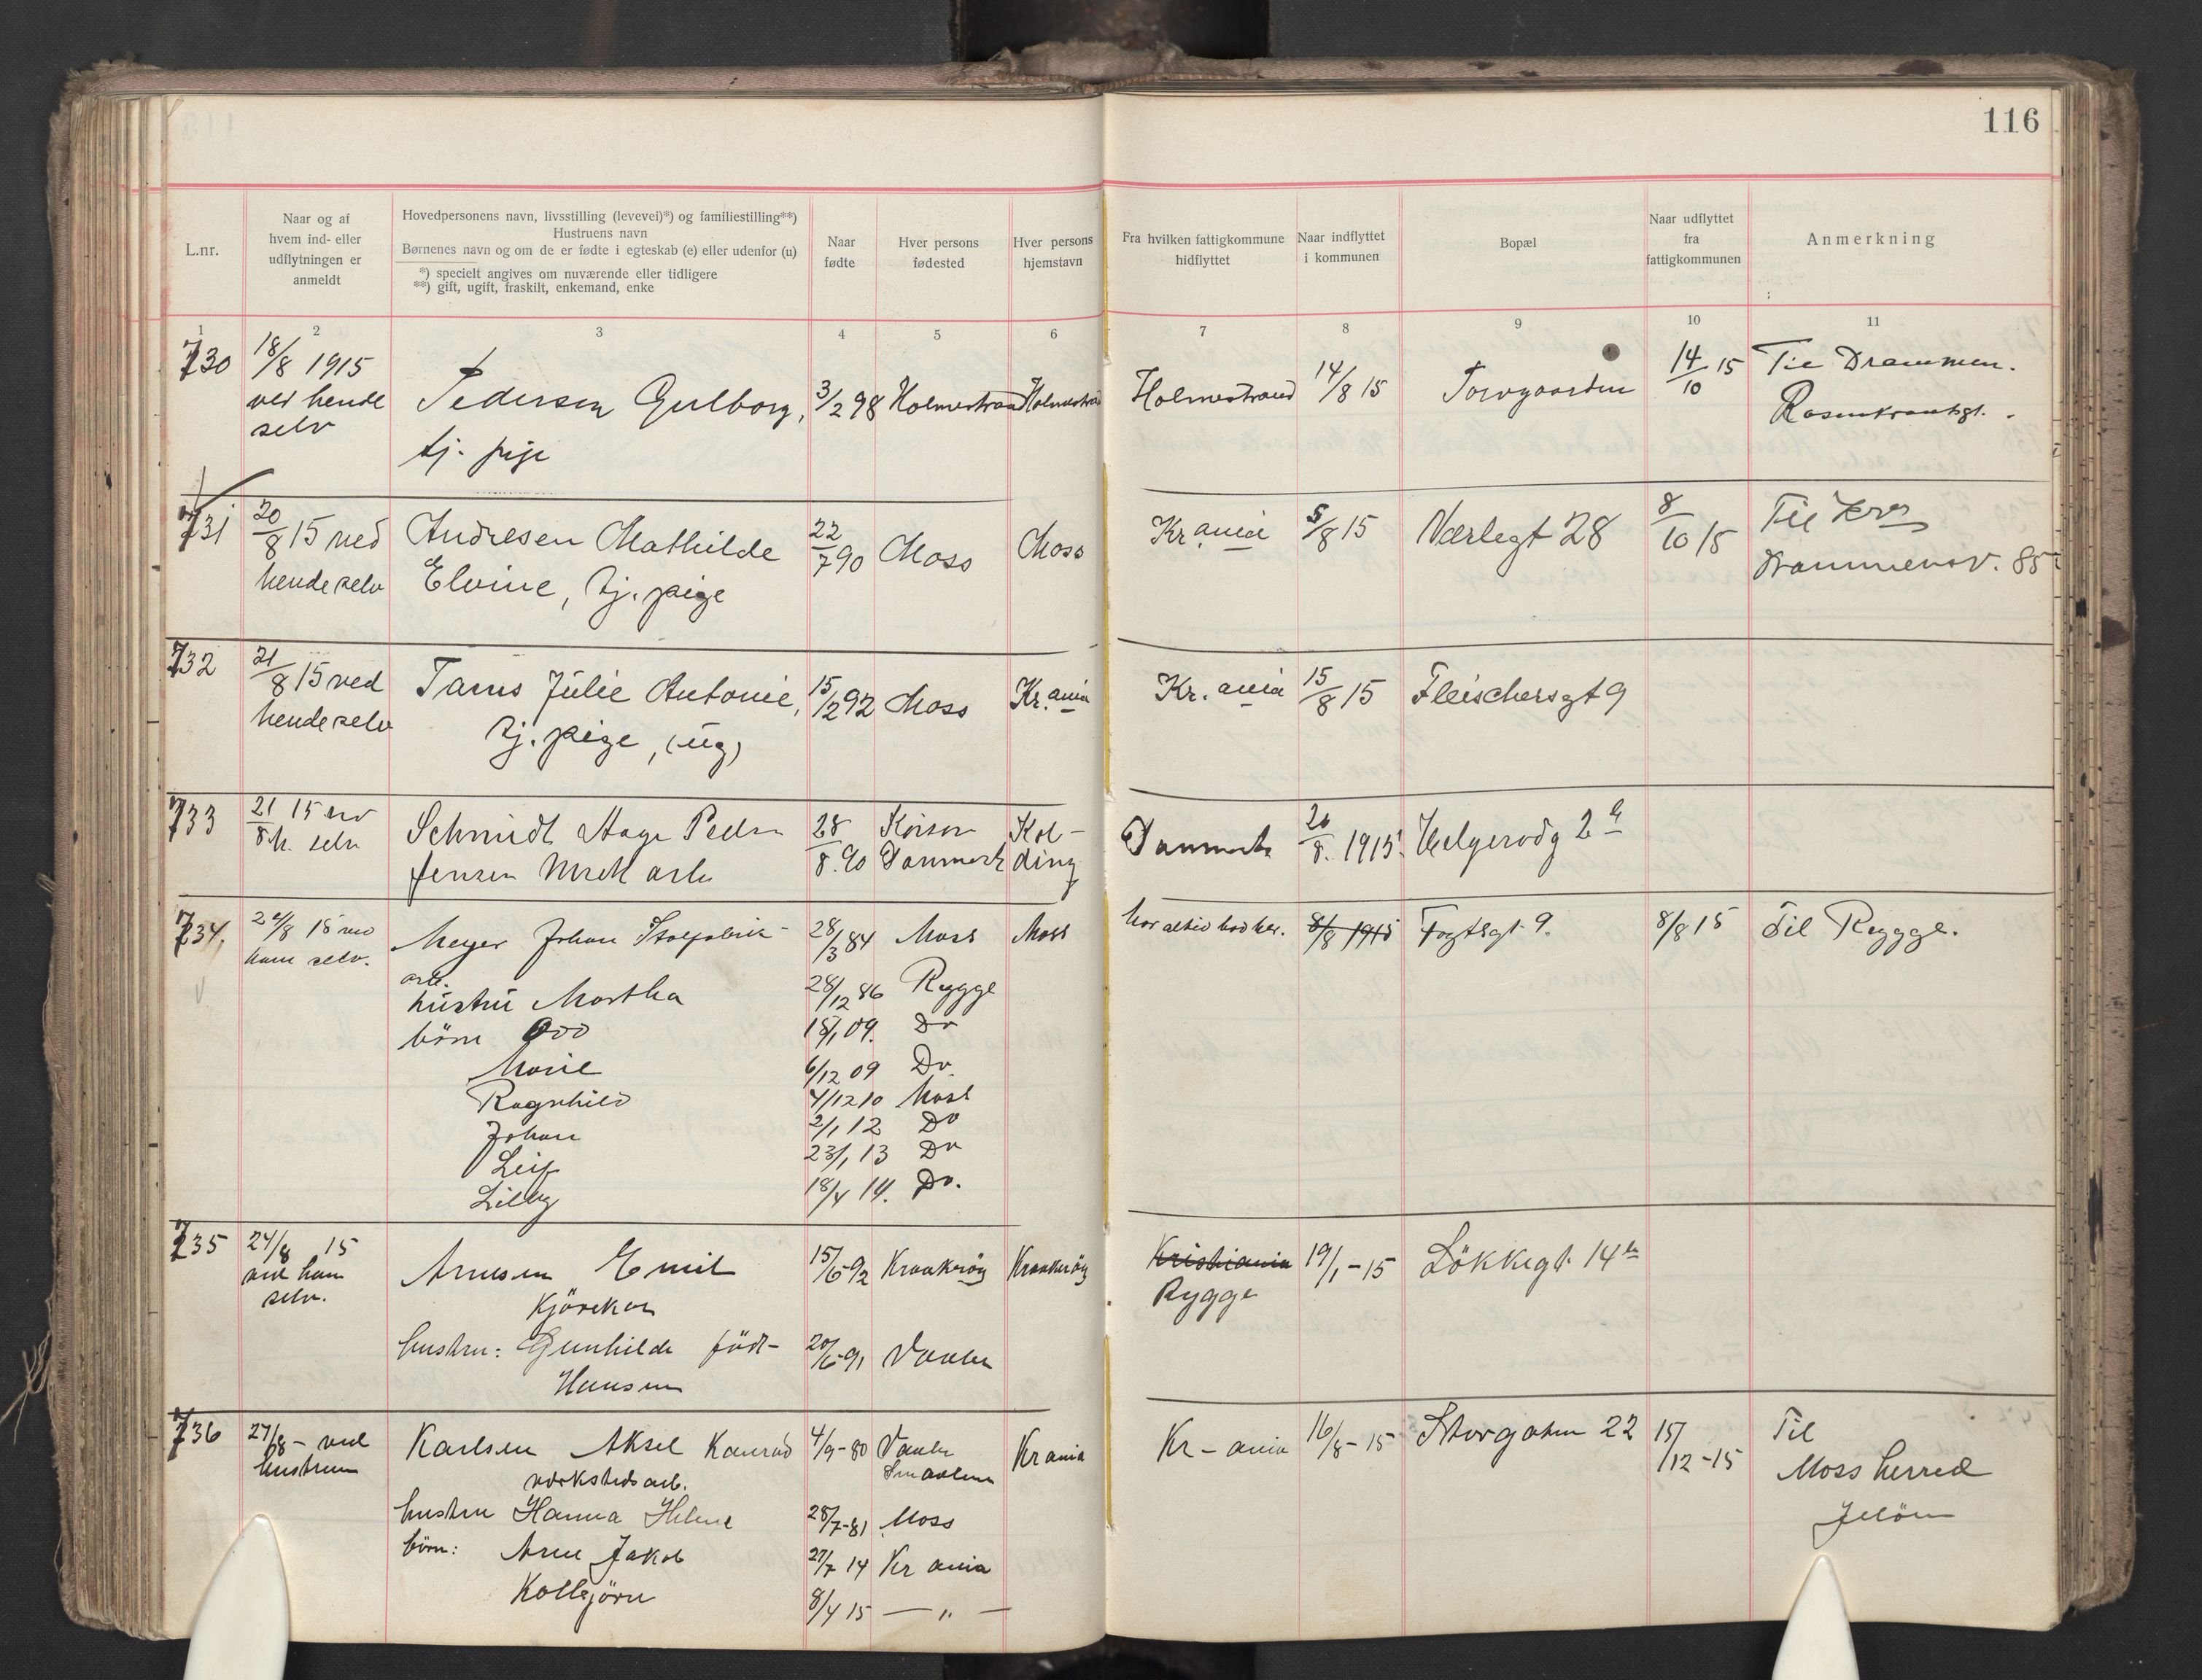 116
L.nr.
Naar og af
hvem ind- eller
udflytningen er
anmeldt
Hovedpersonens navn, livsstilling (levevei)*) og familiestilling**)
Hustruens navn
Børnenes navn og om de er fødte i egteskab (e) eller udenfor (u)
*) specielt angives om nuværende eller tidligere
**) gift, ugift, fraskilt, enkemand, enke
Naar
fødte
Hver persons
fødested
Hver persons
hjemstavn
Fra hvilken fattigkommune
hidflyttet
Naar indflyttet
i kommunen
Bopæl
Naar udflyttet
fra
fattigkommunen
Anmerkning
1 2 3 4 5 6 7 8 9 10 11
730 18/8 1915
ved hende
selv
Pedersen Gulborg, 3/2 98 Holmestrand Holmestrand Holmestrand 14/8 15 Torvgaarden 14/10 15 Til Drammen.
tj. pige
Rosenkrantzgt.
731 20/8 15 ved Andresen Mathilde 22/7 90 Moss Moss Kr.ania 5/8 15 Værlegt 28 8/10 15 Til Kra
hende selv Elvine, Tj. pige
Drammensv. 85
732 21/8 15 ved Tarus Julie Antonie, 15/2 92 Moss Kr.ania Kr. ania 15/8 15 Fleischersgt 9
hende selv Tj. pige, (ug)
733 21/8 15 ved Schmidt Aage Peder 28/8.90 Kolding Danmark 20/8. 1915. Helgerødg 2
h. selv Jensen Danmark
734. 24/8 15 ved Meyer Johan Stolfabrik- 28/3 84 Moss Moss har altid bod her. 8/8 1915 Fogtsgt 9. 8/8 15 Til Rygge.
ham selv. arb.
hustru Martha 28/12 86 Rygge
børn Odd 15/1 09. Do
Marie 6/12 09 Do.
Ragnhild 4/12 10 Moss
Johan 2/1 12 Do
Leif 23/1 13 Do
Lilly 18/4 14. Do.
735 24/8 15 Arnesen Emil 15/6-92 Kraakerøy Kraakerøy Kristiania 19/1-15 Løkkegt 14
ved ham selv. Kjørekar
Rygge
hustru: Gunhilde født- 20/6-91 Vaaler
Hansen
736 27/8- ved Karlsen Aksel Konrad 4/9-80 Vaaler Krania Kr-ania 16/8-15 Storgaten 22 15/12-15 Til
hustruen verkstedsarb. Smaalene
Moss herred
Jeløen
hustru Hanna Helene 28/7-81 Moss
børn: Arne Jakob 27/7 14 Kr ania
Kolbjørn 8/4 15 — " —